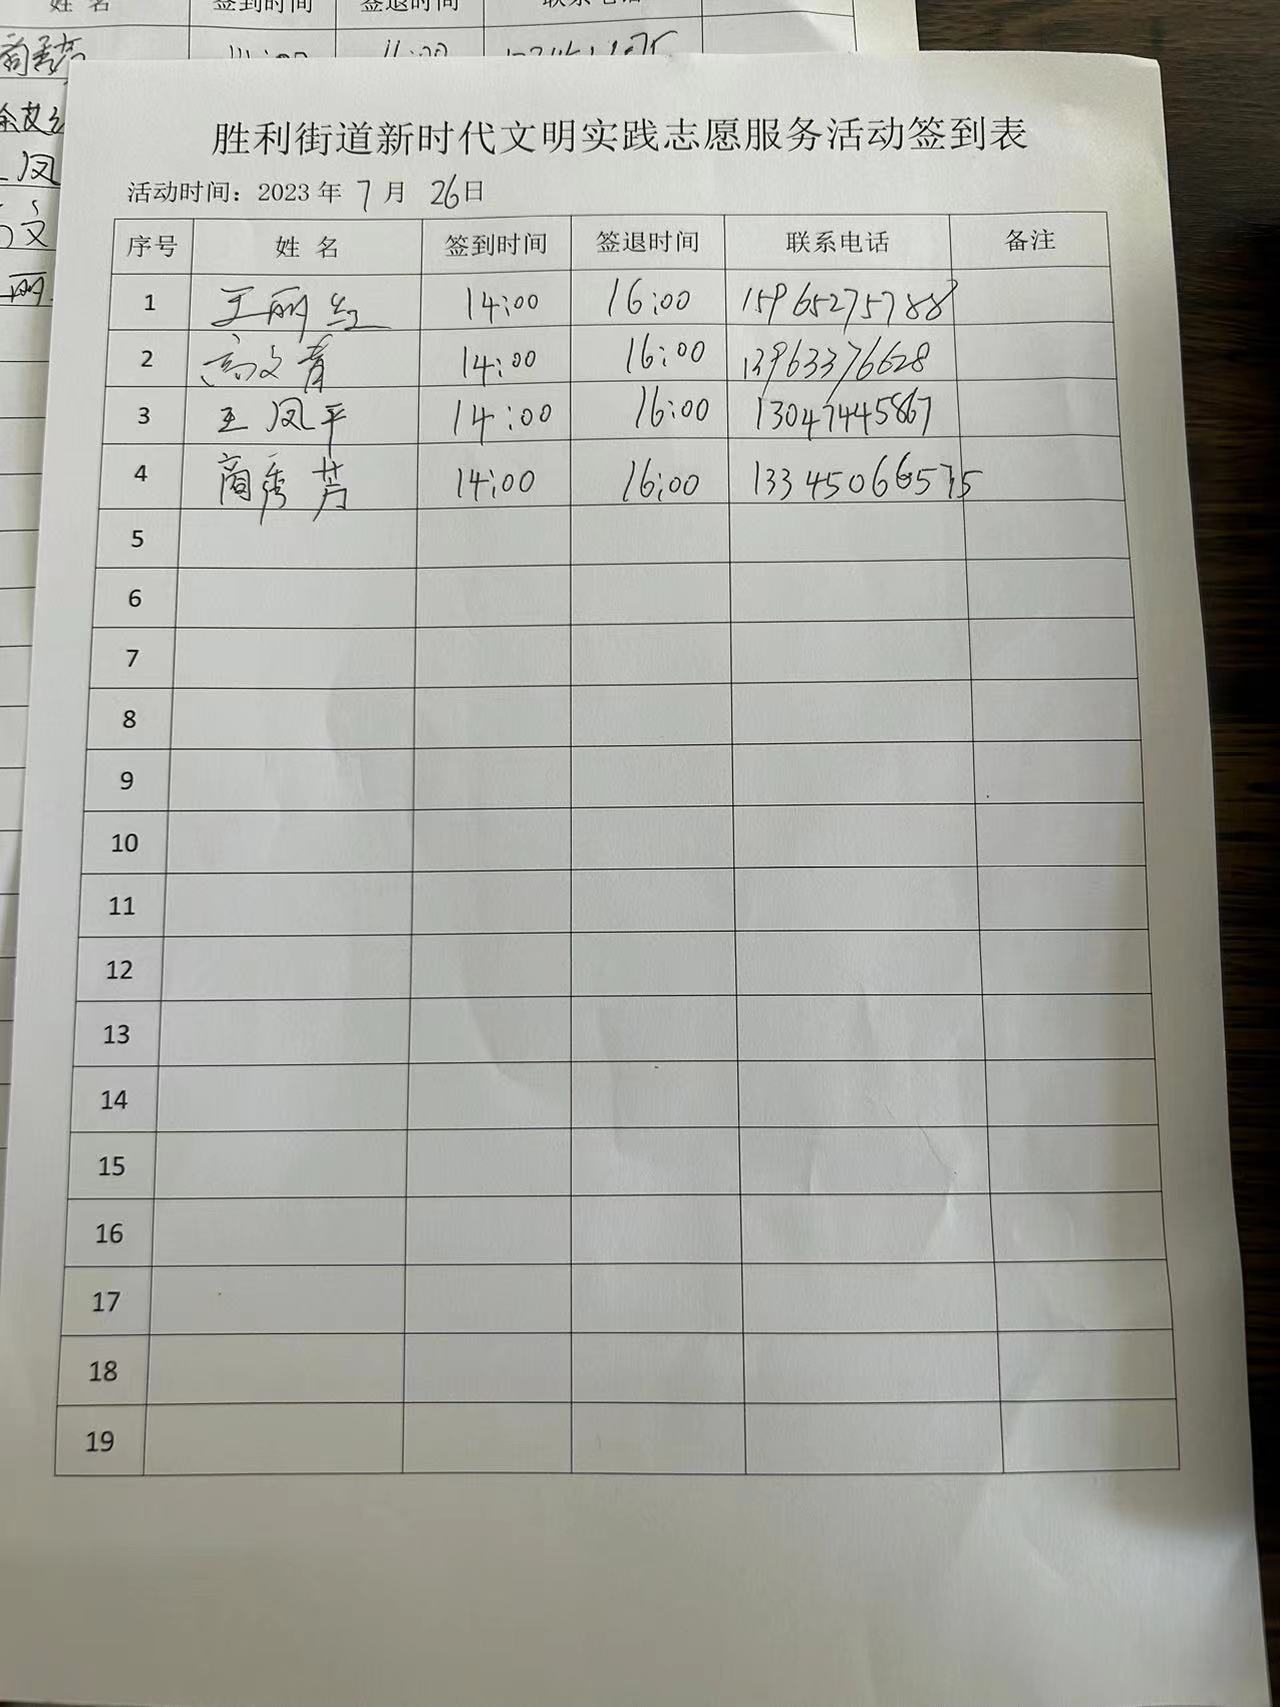 姓 名 签到时间 签退时间 联系电话
14:00 16:00
胜利街道新时代文明实践志愿服务活动签到表
活动时间：2023 年 7 月 26日
序号 姓 名 签到时间 签退时间 联系电话 备注
1 王丽红 14:00 16:00 15965275788
2 高文青 14:00 16:00 13963376628
3 王凤平 14:00 16:00 13047445867
4 商秀芳 14:00 16:00 13345066575
5
6
7
8
9
10
11
12
13
14
15
16
17
18
19